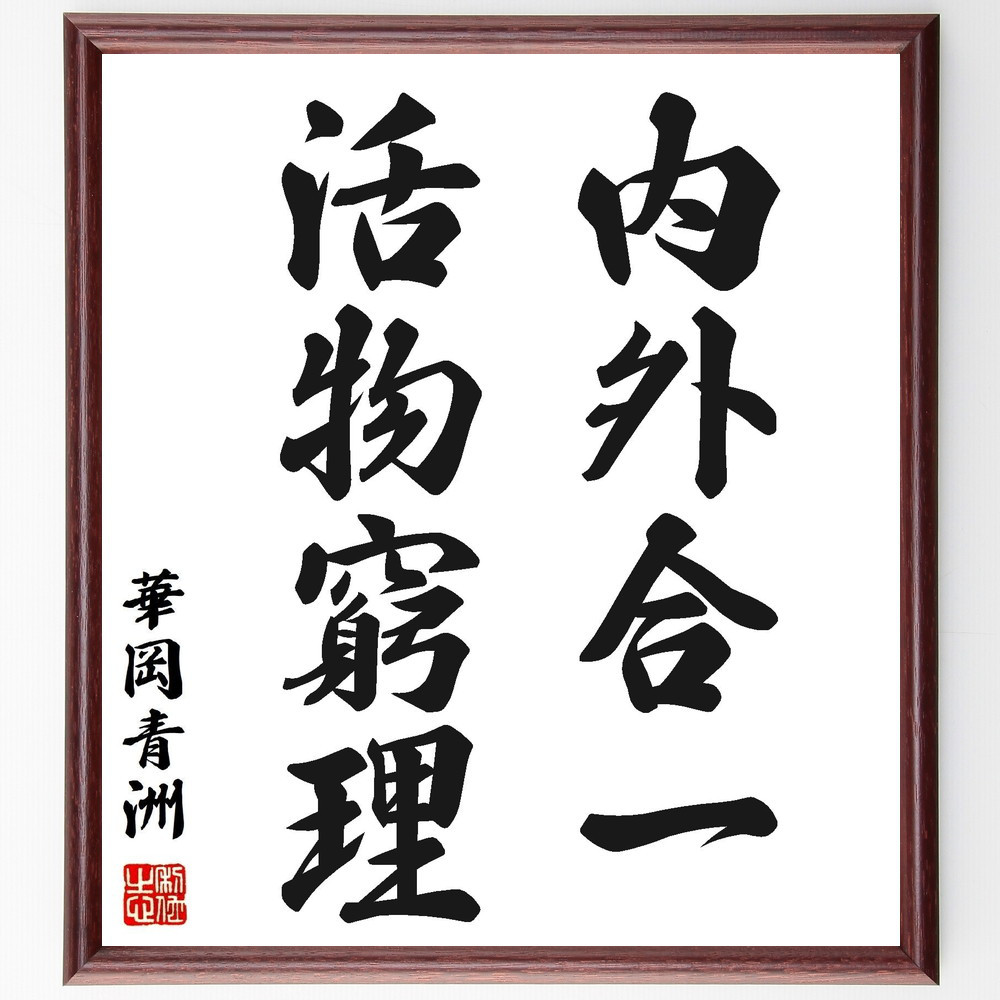 内外合一
活物窮理
華岡青洲